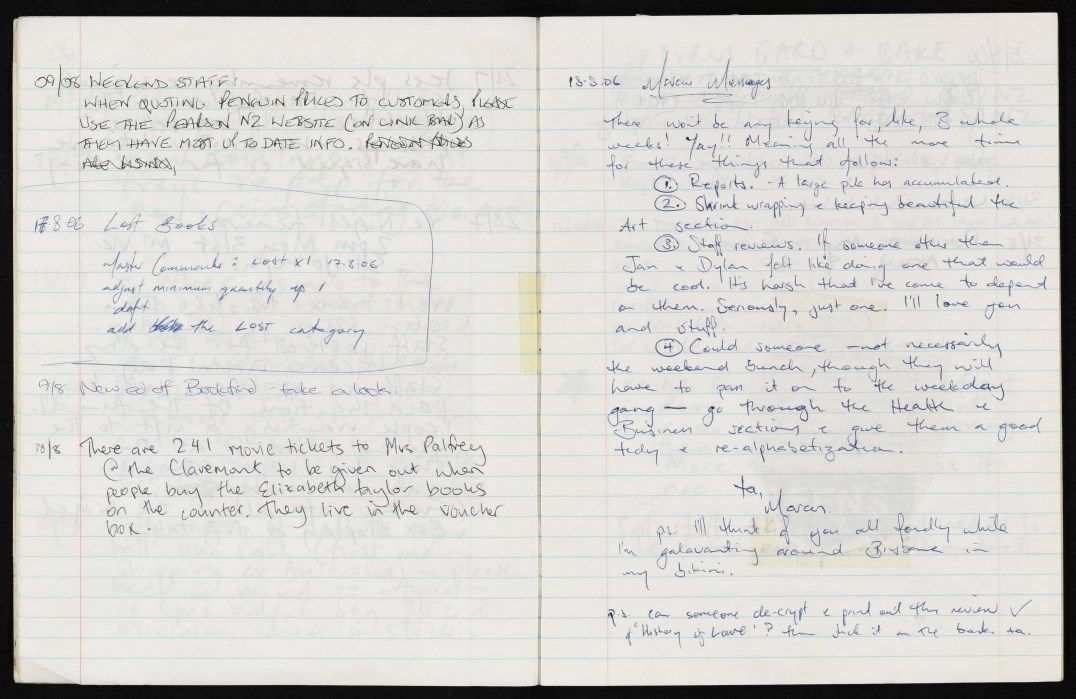 09/08 WEEKEND STAFF:
WHEN QUOTING PENGUIN PRICES TO CUSTOMERS, PLEASE
USE THE PEARSON NZ WEBSITE (ON LINK BAR) AS
THEY HAVE MOST UP TO DATE INFO.
17 8 06 Lost Books
Master Commands : LOST x 1 17.8.06
adjust minimum quantity up 1
daft
add the LOST catagory
9/8 New ed of Bookfind - take a look.
10/8 There are 241 movie tickets to Mrs Palfrey
@ the Claremont to be given out when
people buy the Elizabeth taylor books
on the counter. They live in the voucher
box.
18.8.06 Marcus Messages
There won't be any keying for, like, 3 whole
weeks! Yay!! Meaning all the more time
for these things that follow:
① Reports. - A large pile has accumulated.
② Shrink wrapping & keeping beautiful the
Art section.
③ Staff reviews. If someone other than
Jan & Dylan felt like doing one that would
be cool. It's harsh that I've come to depend
on them. Seriously, just one. I'll love you
and stuff.
④ Could someone - not necessarily
the weekend bunch, though they will
have to pass it on to the weekday
gang - go through the Health &
Business sections & give them a good
tidy & re-alphabetization.
ta,
Marcus.
ps. I'll think of you all fondly while
I'm galavanting around Brisbane in
my bikini.
p.s. can someone de-crypt & print out this review ✓
of 'History of Love'? then stick it on the book. ta.